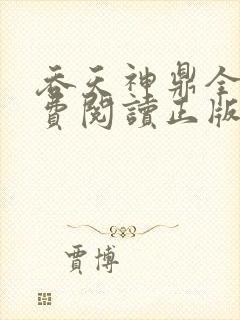 吞天神鼎全
費閱讀正版
賈博